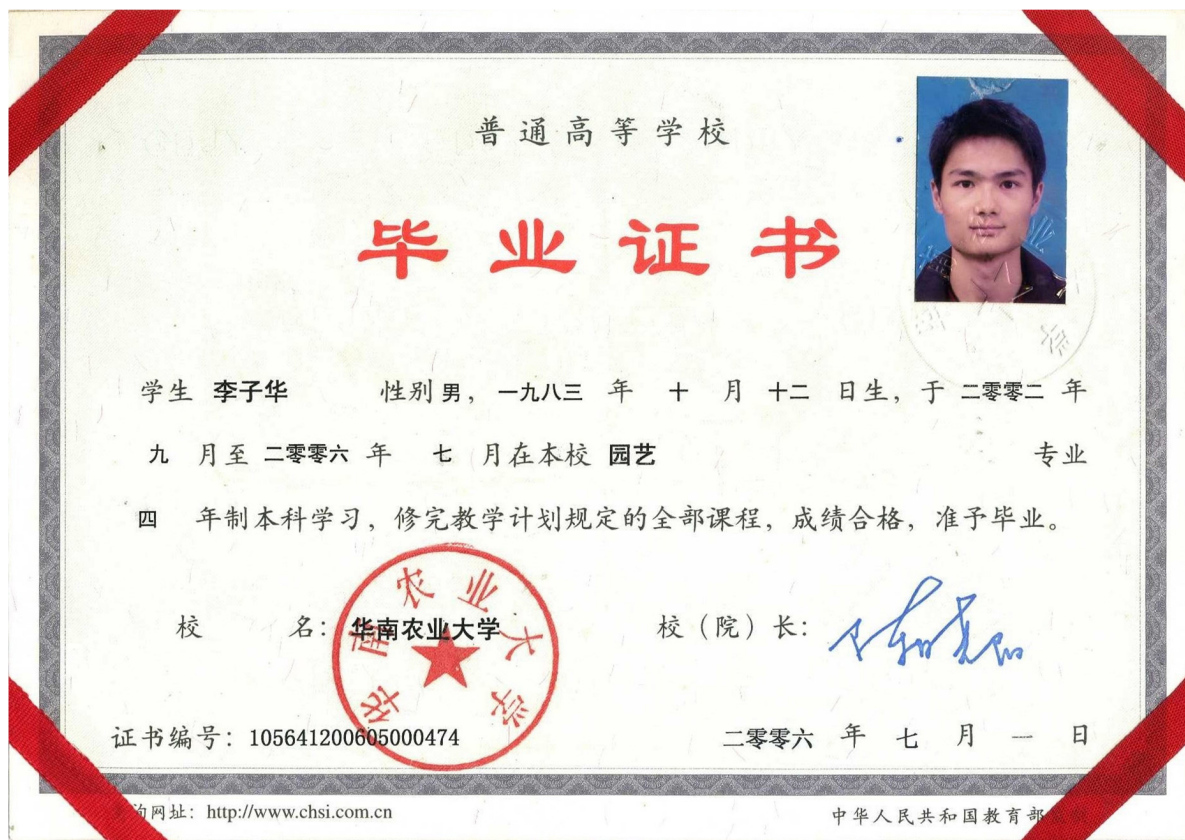 普通高等学校
毕业证书
学生 李子华 性别 男，一九八三 年 十 月 十二 日生，于 二零零二 年
九 月至 二零零六 年 七 月在本校 园艺 专业
四 年制本科学习，修完教学计划规定的全部课程，成绩合格，准予毕业。
校 名：华南农业大学 校（院）长：
华南农业大学
证书编号：105641200605000474 二零零六 年 七 月 一 日
询网址：http://www.chsi.com.cn 中华人民共和国教育部